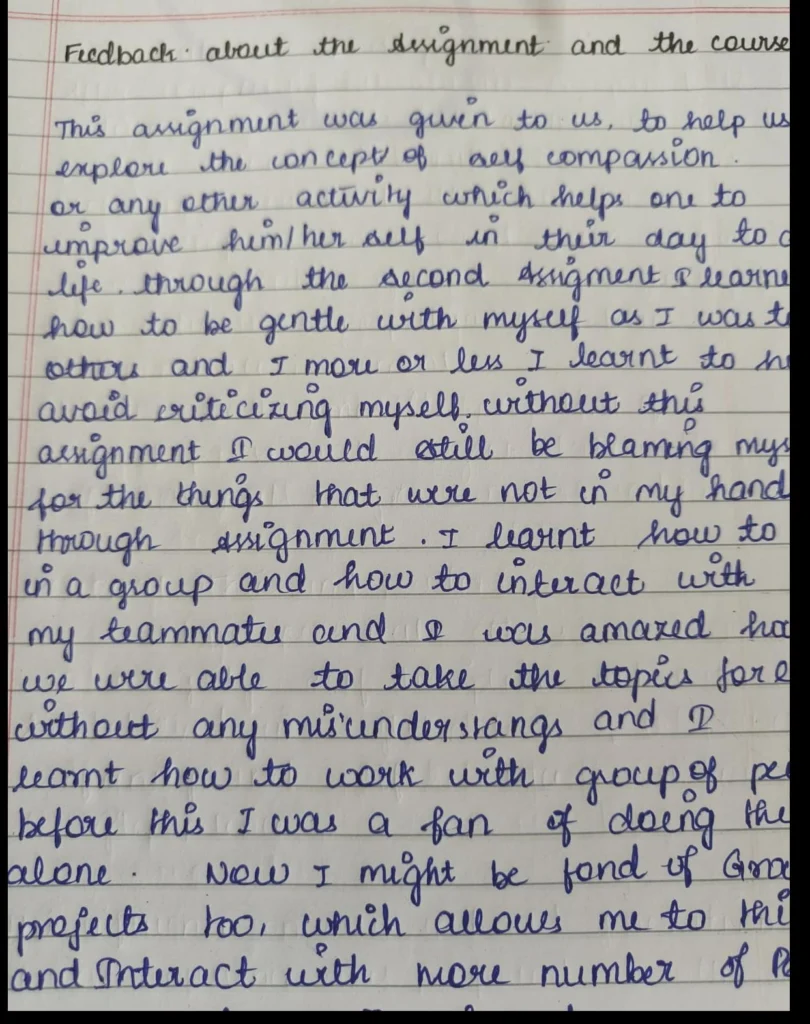 Feedback about the assignment and the course
This assignment was given to us, to help us
explore the concept of self compassion.
or any other activity which helps one to
improve him/her self in their day to d
life. through the second Assigment I learne
how to be gentle with myself as I was t
others and I more or less I learnt to h
avoid criticizing myself. without this
assignment I would still be blaming mys
for the things that were not in my hand
through assignment. I learnt how to
in a group and how to interact with
my teammates and I was amazed ho
we were able to take the topics for e
without any misunderstangs and I
learnt how to work with group of pe
before this I was a fan of doeing the
alone. Now I might be fond of Gro
projects too, which allows me to thi
and Interact with more number of P